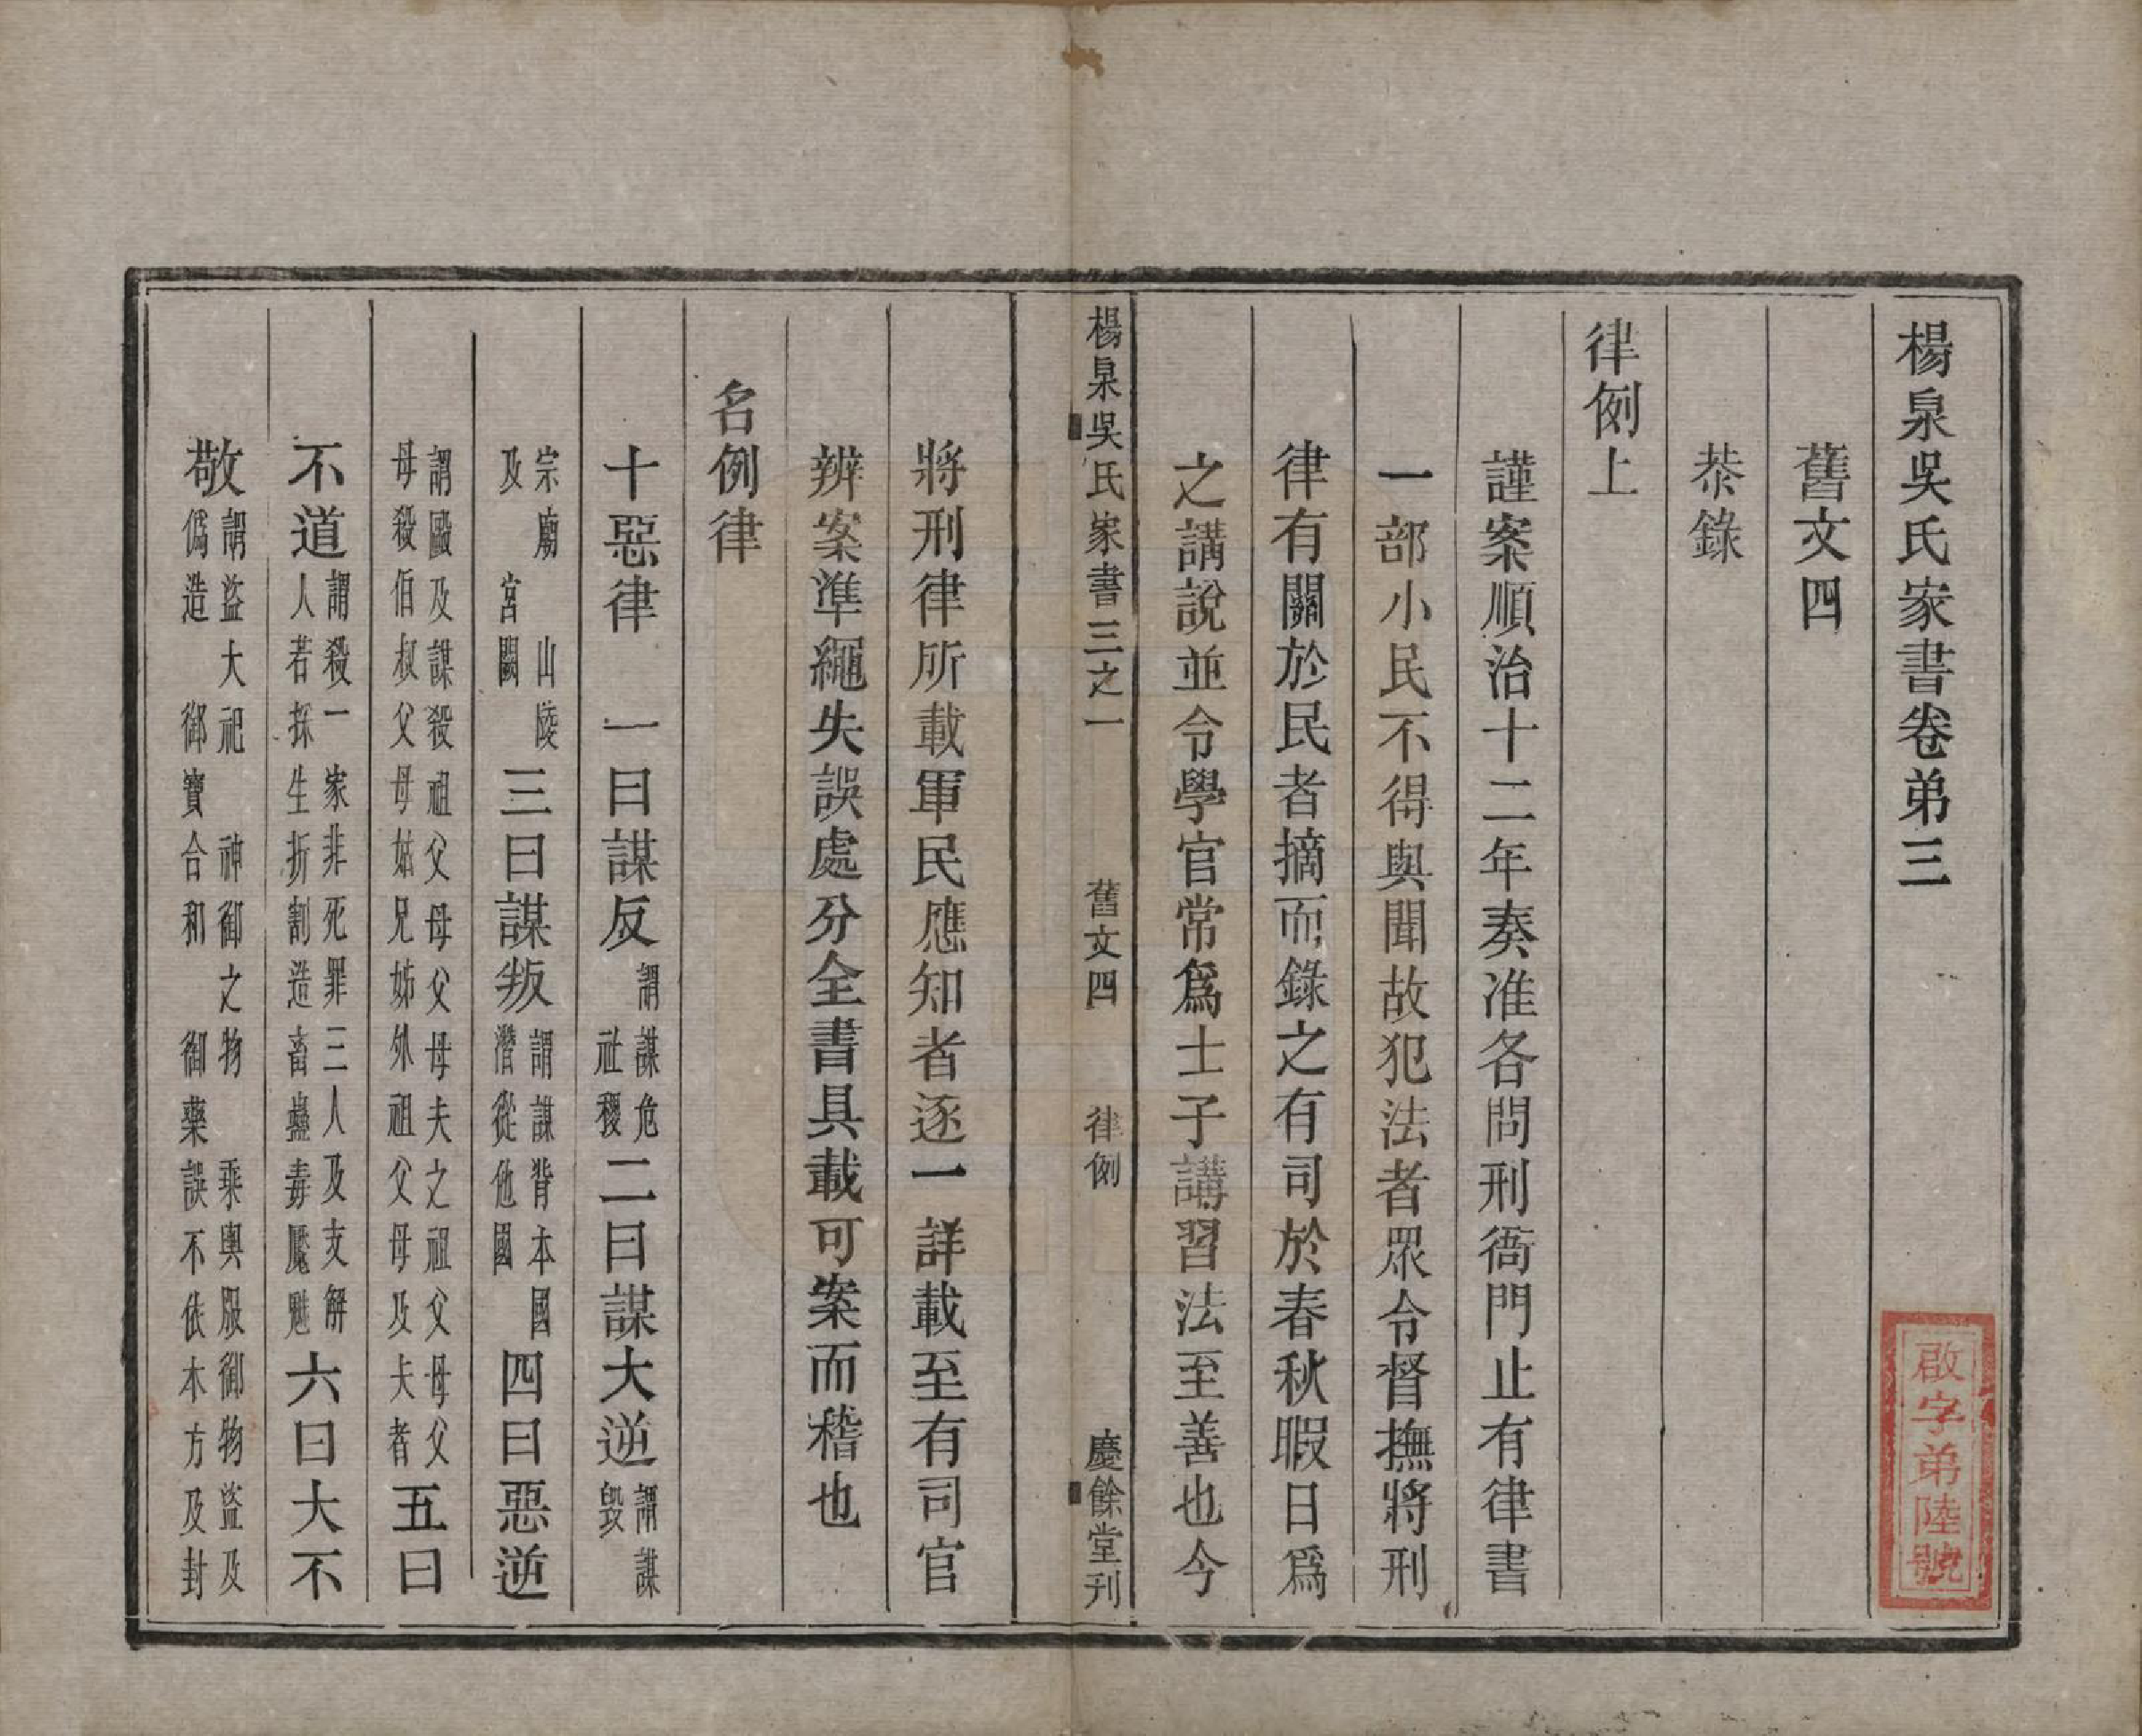 楊泉吳氏家書卷弟三
舊文四
恭錄
律例上
謹案順治十二年奏准各問刑衙門止有律書
一部小民不得與聞故犯法者眾令督撫將刑
律有關於民者摘而錄之有司於春秋暇日爲
之講說並令學官常爲士子講習法至善也今
楊泉吳氏家書三之一 舊文四 律例 慶餘堂刊
將刑律所載軍民應知者逐一詳載至有司官
辨案準繩失誤處分全書具載可案而稽也
名例律
十惡律 一曰謀反謂謀危社稷二曰謀大逆謂謀毀
宗廟山陵及宮闕三曰謀叛謂謀背本國潛從他國四曰惡逆
謂毆及謀殺祖父母父母夫之祖父母父母殺伯叔父母姑兄姊外祖父母及夫者五曰
不道謂殺一家非死罪三人及支解人若採生折割造畜蠱毒魘魅六曰大不
敬謂盜大祀神御之物乘輿服御物盜及偽造御寶合和御藥誤不依本方及封
啟字弟陸號